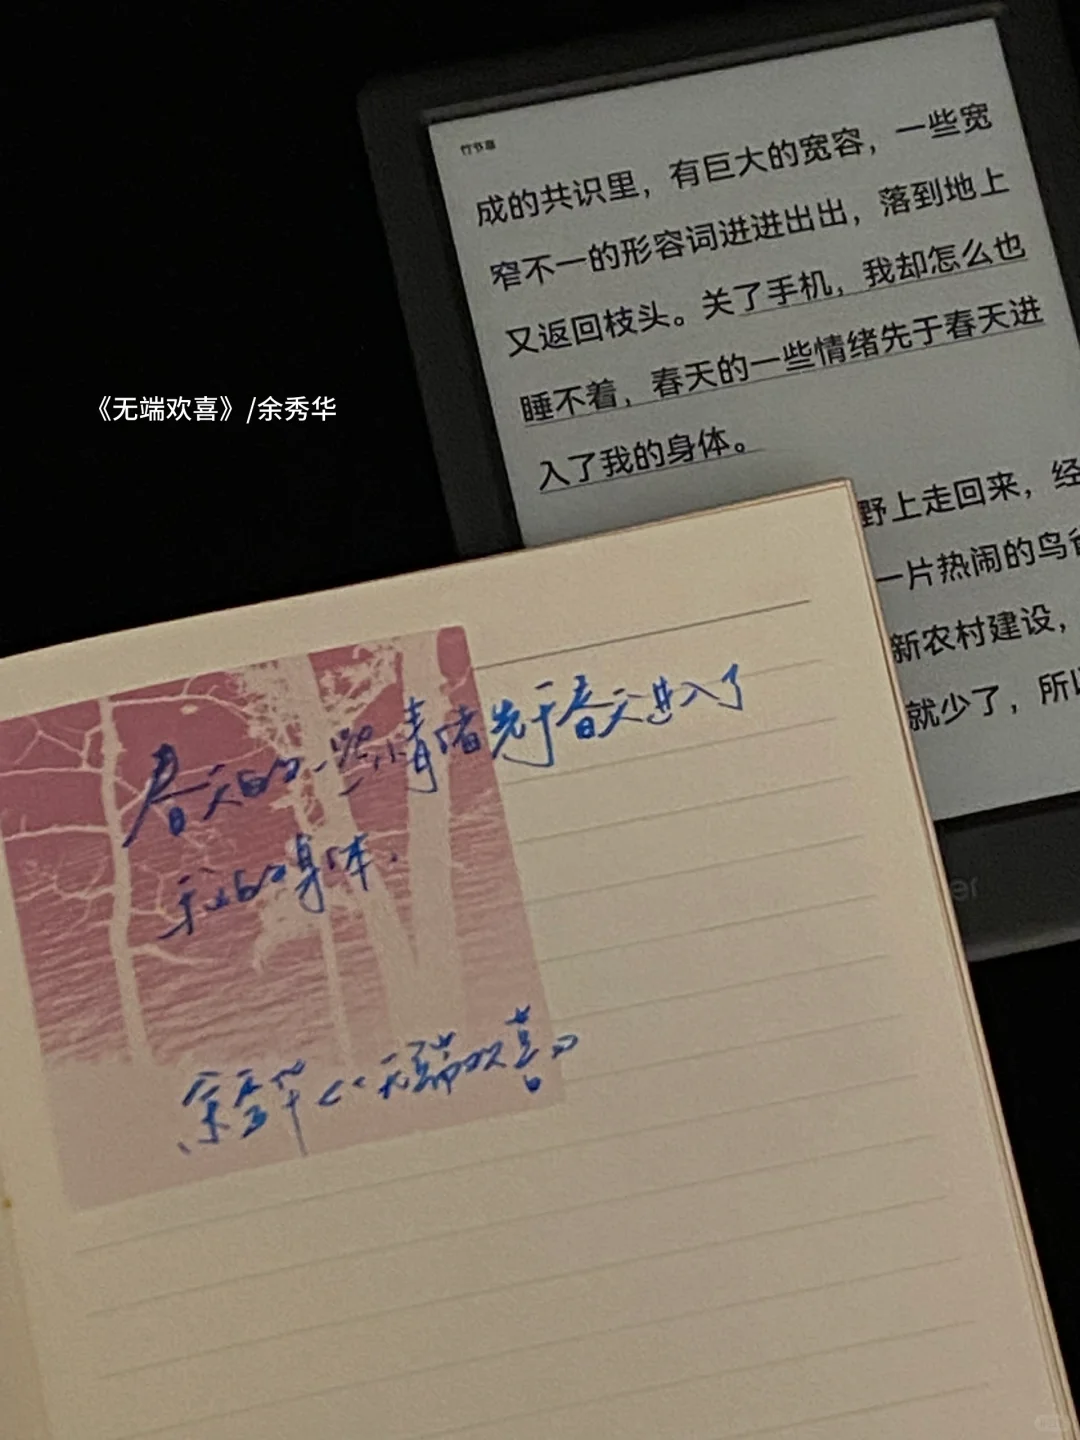 成的共识里，有巨大的宽容，一些宽
窄不一的形容词进进出出，落到地上
又返回枝头。关了手机，我却怎么也
睡不着，春天的一些情绪先于春天进
入了我的身体。
野上走回来，经
一片热闹的鸟
新农村建设，
就少了，所以
《无端欢喜》/余秀华
春天的一些情绪先于春天进入了
我的身体.
余秀华《无端欢喜》